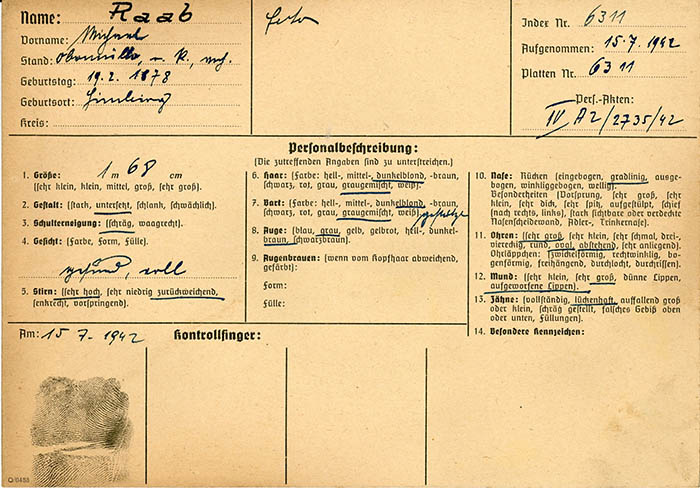 Name: Raab
Vorname: Michael
Stand: Obermüller, r. k., verh.
Geburtstag: 19.2. 1878
Geburtsort:
Kreis:
Foto
Index Nr. 6311
Aufgenommen: 15.7.1942
Platten Nr. 6311
Pers.-Akten:
IV A2/2735/42
Personalbeschreibung:
(Die zutreffenden Angaben sind zu unterstreichen.)
1. Größe: 1 m 68 cm
(sehr klein, klein, mittel, groß, sehr groß).
2. Gestalt: (stark, untersetzt, schlank, schwächlich).
3. Schulterneigung: (schräg, waagrecht).
4. Gesicht: (Farbe, Form, Fülle).
gesund, voll
5. Stirn: (sehr hoch, sehr niedrig zurückweichend,
senkrecht, vorspringend).
6. Haar: (Farbe: hell-, mittel-, dunkelblond, -braun,
schwarz, rot, grau, graugemischt, weiß).
7. Bart: (Farbe: hell-, mittel-, dunkelblond, -braun,
schwarz, rot, grau, graugemischt, weiß) gestutzt
8. Auge: (blau, grau, gelb, gelbrot, hell-, dunkel-
braun, schwarzbraun).
9. Augenbrauen: (wenn vom Kopfhaar abweichend,
gefärbt):
Form:
Fülle:
10. Nase: Rücken (eingebogen, gradlinig, ausge-
bogen, winkliggebogen, wellig).
Besonderheiten (Vorsprung, sehr groß, sehr
klein, sehr dick, sehr spitz, aufgestülpt, schief
[nach rechts, links], stark sichtbare oder verdeckte
Nasenscheidewand, Adler-, Trinkernase).
11. Ohren: (sehr groß, sehr klein, sehr schmal, drei-,
viereckig, rund, oval, abstehend, sehr anliegend).
Ohrläppchen: (zwickelförmig, rechtwinklig, bo-
genförmig, freihängend, durchlocht, durchrissen).
12. Mund: (sehr klein, sehr groß, dünne Lippen,
aufgeworfene Lippen).
13. Zähne: (vollständig, lückenhaft, auffallend groß
oder klein, schräg gestellt, falsches Gebiß oben
oder unten, Füllungen).
14. Besondere Kennzeichen:
Am: 15 7. 1942
Kontrollfinger: